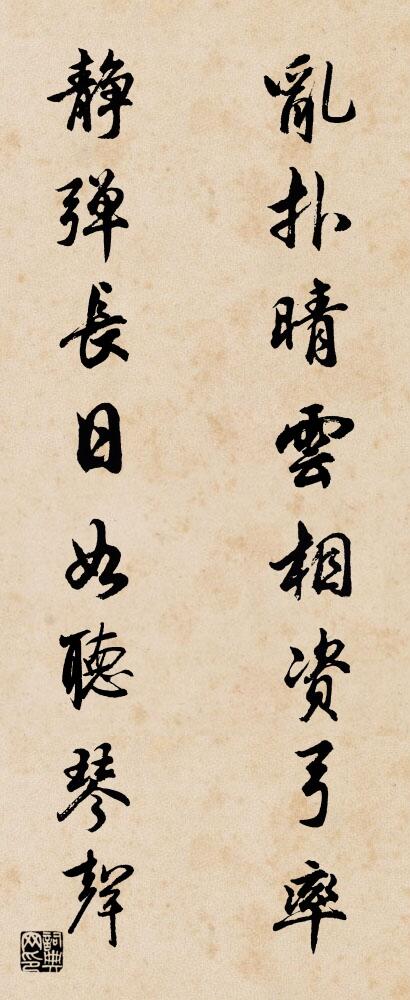 亂扑晴雲相资弓率
静弹長日如聽琴聲
詞典网印